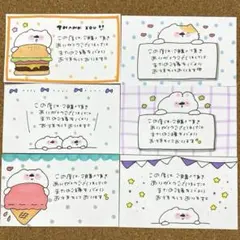 THANK YOU!!
この度は、ご購入頂き
ありがとうございました
またのご縁を心より
お待ちしております
この度は、ご購入頂き
ありがとうございました
またのご縁を心より
お待ちしております
この度は、ご購入頂き
ありがとうございました
またのご縁を心より
お待ちしております
この度は、ご購入頂き
ありがとうございました
またのご縁を心より
お待ちしております
この度は、ご購入頂き
ありがとうございました
またのご縁を心より
お待ちしております
この度は、ご購入頂き
ありがとうございました
またのご縁を心より
お待ちしております